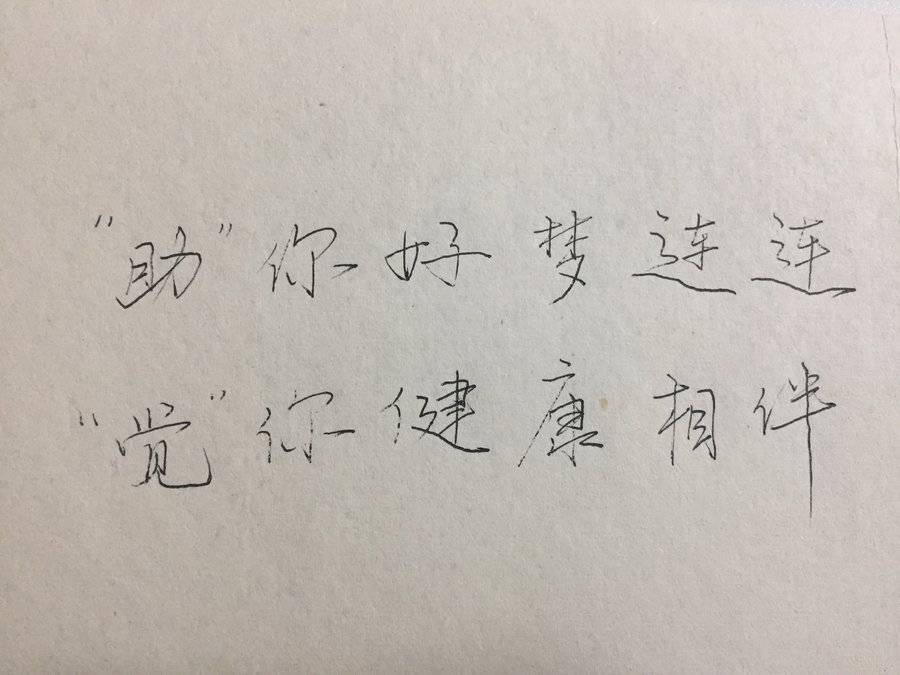 “助”你好梦连连
“觉”你健康相伴